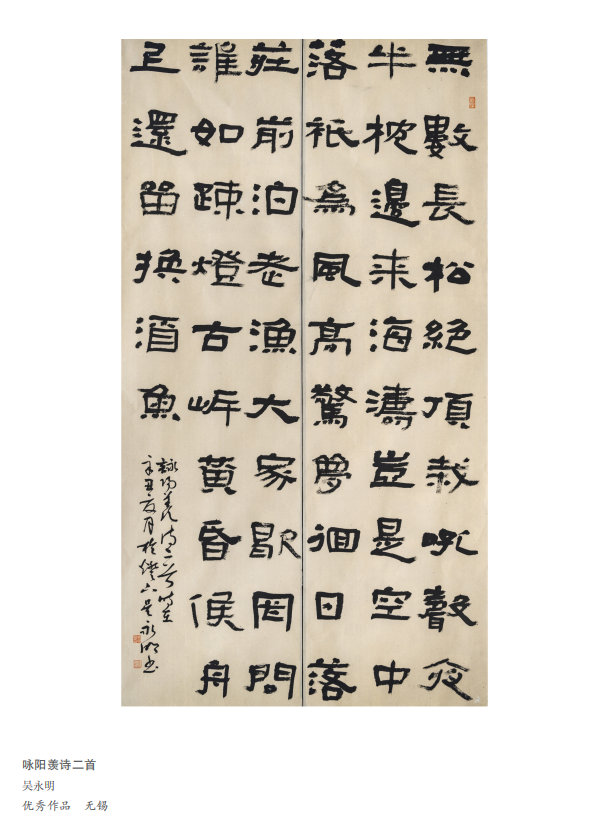 無數長松絕頂栽吼聲夜
半枕邊來海濤豈是空中
落衹為風高驚夢徊日落
莊前泊老漁大家歇罔問
誰如疎燈古岸黃昏候舟
還留換酒魚
詠陽羨詩二首時在
辛丑夏月於 永明書
咏阳羡诗二首
吴永明
优秀作品 无锡